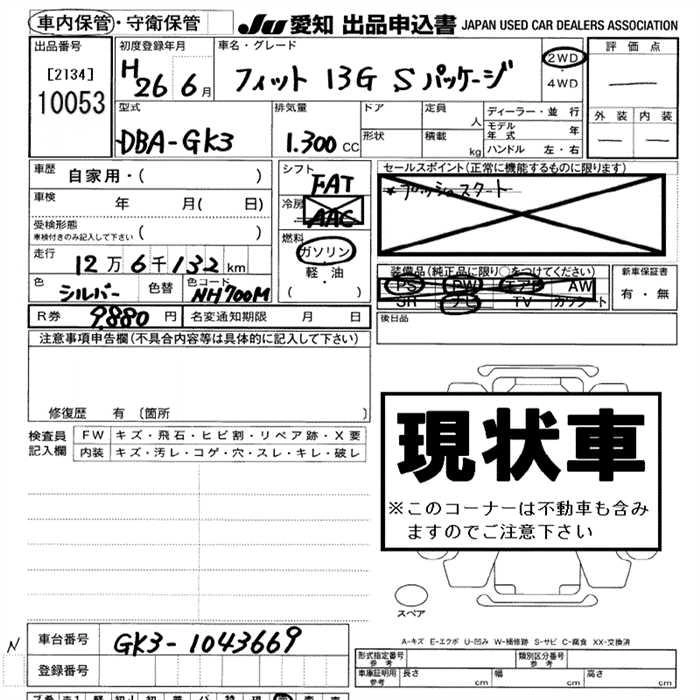 車内保管・守衛保管 JU 愛知 出品申込書 JAPAN USED CAR DEALERS ASSOCIATION
出品番号 初度登録年月 車名・グレード 評価点
[2134] H26 6月 フィット 13G Sパッケージ 2WD・4WD —
10053
型式 排気量 ドア 定員 人 ディーラー・並行 外装 内装
DBA-GK3 1.300 CC 形状 積載 kg モデル年式 年 — —
ハンドル 左・右
車歴 自家用・( ) シフト FAT セールスポイント(正常に機能するものに限ります)
車検 年 月( 日) 冷房 AAC *プッシュスタート
受検形態 ( )
車検付きのみ記入して下さい
燃料 ガソリン
走行 12万6千132km 軽・油 装備品(純正品に限り○をつけてください) 新車保証書
色 シルバー 色替 色コード NH700M ・( ) PS PW エアB AW 有・無
SR ナビ TV カワシート
R券 9,880円 名変通知期限 月 日 後日品
注意事項申告欄(不具合内容等は具体的に記入して下さい)
現状車
※このコーナーは不動車も含み
ますのでご注意下さい
修復歴 有 〔箇所 〕
検査員記入欄 FW キズ・飛石・ヒビ割・リペア跡・X要
内装 キズ・汚レ・コゲ・穴・スレ・キレ・破レ
スペア
A-キズ E-エクボ U-凹み W-補修跡 S-サビ C-腐食 XX-交換済
N 車台番号 GK3-1043669
登録番号
形式指定番号 参考 類別区分番号 参考
車庫証明用 参考 長さ cm 幅 cm 高さ cm